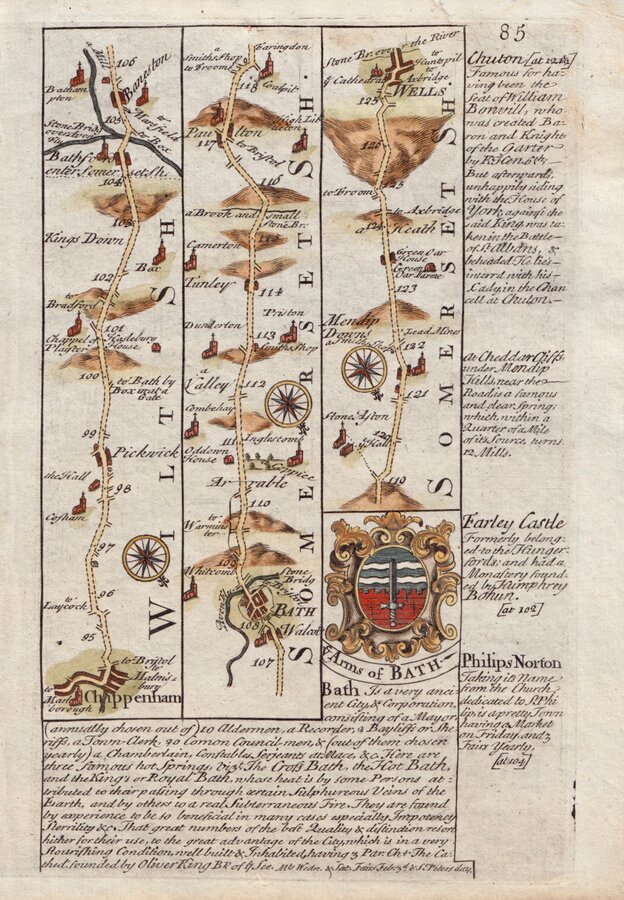 85
a
Mill
106
Baneston
Batham
pton
to
Marsfield
105
Stone Bridg
over Avon
Flu
to Box
Bathford
enter Somersetsh.
104
103
Kings Down
Box
102
to
Bradford
101
Chappel of
Plaister
Haslebury
House
100
to Bath by
Box is at a
Gate
99
Pickwick
the Hall
98
Cosham
97
to
Laycock
96
95
to Bristol
to
Malms
bury
to
Marl
borough
Chippenham
WILTSH
a
Smiths Shop
to Froom
Faringdon
Coalpit
118
High Lit
tleton
Paulton
117
to Bristol
116
a Brook and small
Stone Br.
115
Camerton
Tunley
114
Priston
Dunkerton
113
Smiths Shop
a
Valley
112
Combehay
111
Inglescomb
Oddown
House
Coppice
Arrable
110
to
Warmins
ter
109
Whitcomb
Stone
Bridg
Avon flu
to Bristol
BATH
108
Walcot
107
SOMERSETSH.
Stone Br. over the River
to
Huntspil
to
Axbridge
ye Cathedral
WELLS
125
126
125
to Froom
to Axbridge
124
a Heath
Green Oar
House
Green Oar
Farme
123
Mendip
Downs
a Smiths Shop
Lead Mines
122
121
Stone Aston
120
ye Hall
119
SOMERSETSH.
ye Arms of BATH
Chuton [at 122½]
Famous for ha-
ving been the
Seat of William
Bonvill, who
was created Ba-
ron and Knight
of the Garter
by K. Hen. 6th.
But afterwards,
unhappily siding
with the House of
York, against the
said King, was ta-
ken in the Battle
of St. Albans, &
beheaded. He lies
interrd with his
Lady, in the Chan
cell at Chuton.
At Cheddar Cliffs,
under Mendip
Hills, near the
Road, is a famous
and clear Spring;
which, within a
Quarter of a Mile
of its Source, turns
12. Mills.
Farley Castle
Formerly belong-
ed to the Hunger-
fords: and had a
Monastery found-
ed by Humphrey
Bohun.
[at 102]
Philips Norton
Taking its Name
from the Church
dedicated to St. Phi
lip, is a pretty Town
having a Market
on Friday, and 3
Fairs Yearly.
[at 104]
Bath Is a very anci
ent City, & Corporation,
consisting of a Mayor
(annually chosen out of) 10 Aldermen, a Recorder, 2 Bayliffs or She
riffs, a Town-Clerk, 20 Comon Council-men, & (out of them chosen
yearly) a Chamberlain, Constables, Serjeants at Mace, &c. Here are
three famous hot Springs, Viz. The Cross Bath, the Hot Bath,
and the King's or Royal Bath, whose heat is by some Persons at-
tributed to their passing through certain Sulphureous Veins of the
Earth, and by others to a real Subterraneous Fire. They are found
by experience to be so beneficial in many cases especially Impotency
Sterrility &c. That great numbers of the best Quality & distinction resort
hither for their use, to the great advantage of the City, which is in a very
flourishing Condition, well built & Inhabited, having 3 Par. Chs. The Ca-
thed. founded by Oliver King Bp. of ye See. Mt. Wedn. & Sat. Fairs Feb. 3d. & St. Peters day.